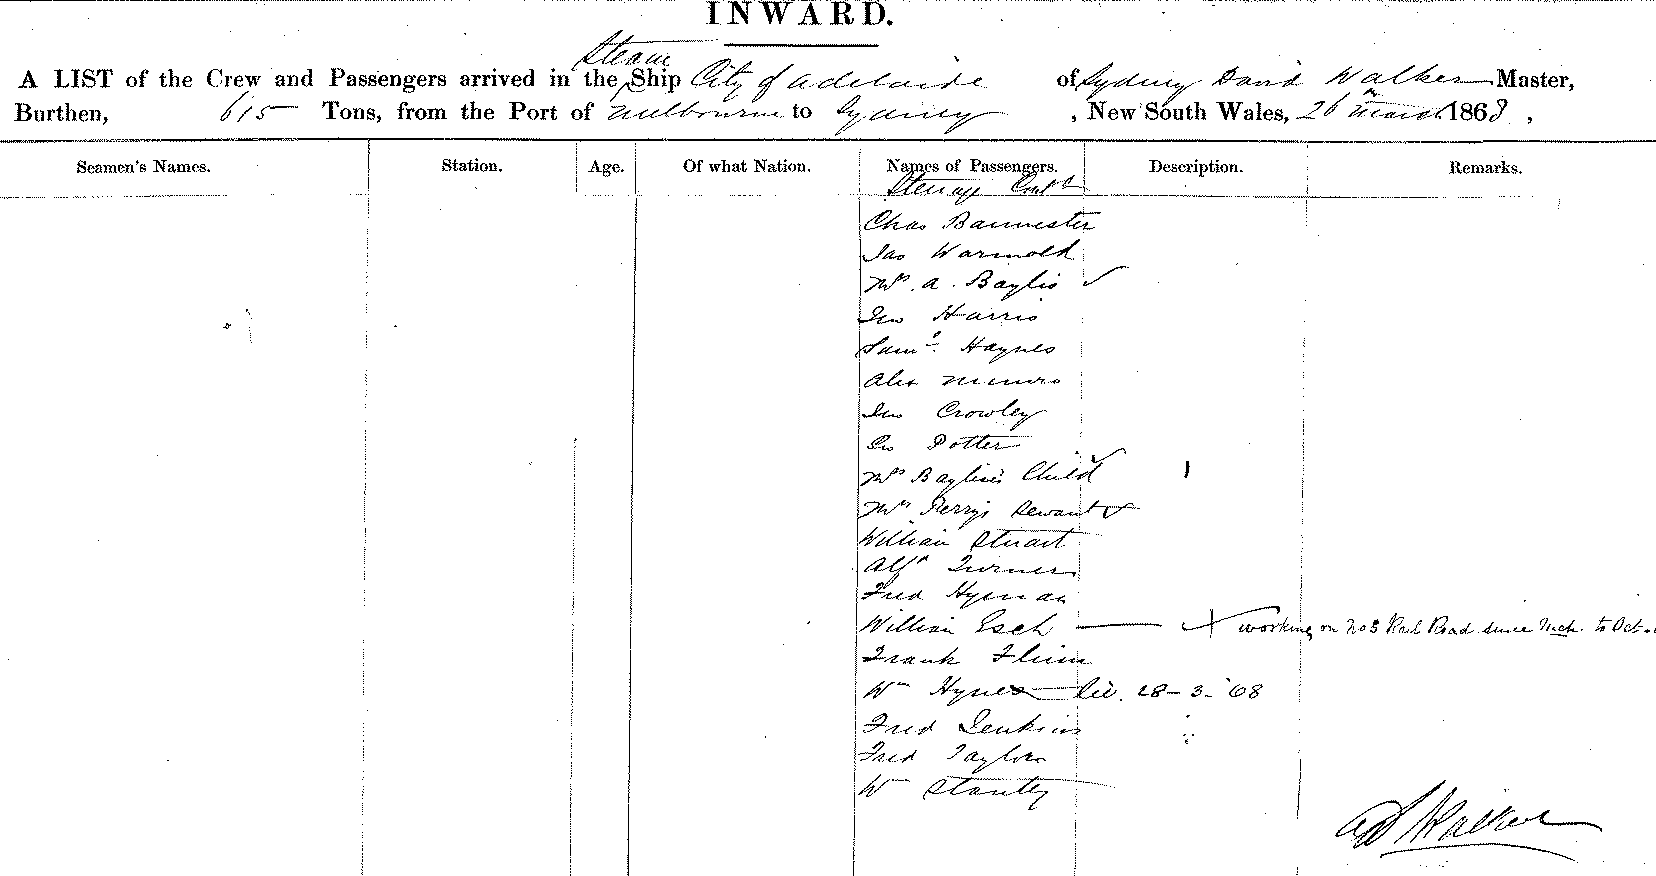 INWARD.
Steam
A LIST of the Crew and Passengers arrived in the Ship City of Adelaide of Sydney David Walker Master,
Burthen, 615 Tons, from the Port of Melbourne to Sydney, New South Wales, 26 March 1868,
Seamen's Names. Station. Age. Of what Nation. Names of Passengers. Description. Remarks.
Steerage Contd
Chas Bannester
Jas Warmold
Mrs. A. Baylis ✓
Jno Harris
Saml. Haynes
Alex Munro
Jno Crowley
Potter
Mrs Baylis's Child 1
Mrs Perry's Servant
William Stuart
Alfd Turner
Fred Hyman
William Esch working on Rail Road since to Oct
Frank Flinn
Wm Hynes 28-3-'68
Fred Jenkins
Fred Taylor
W Stanley
Walker